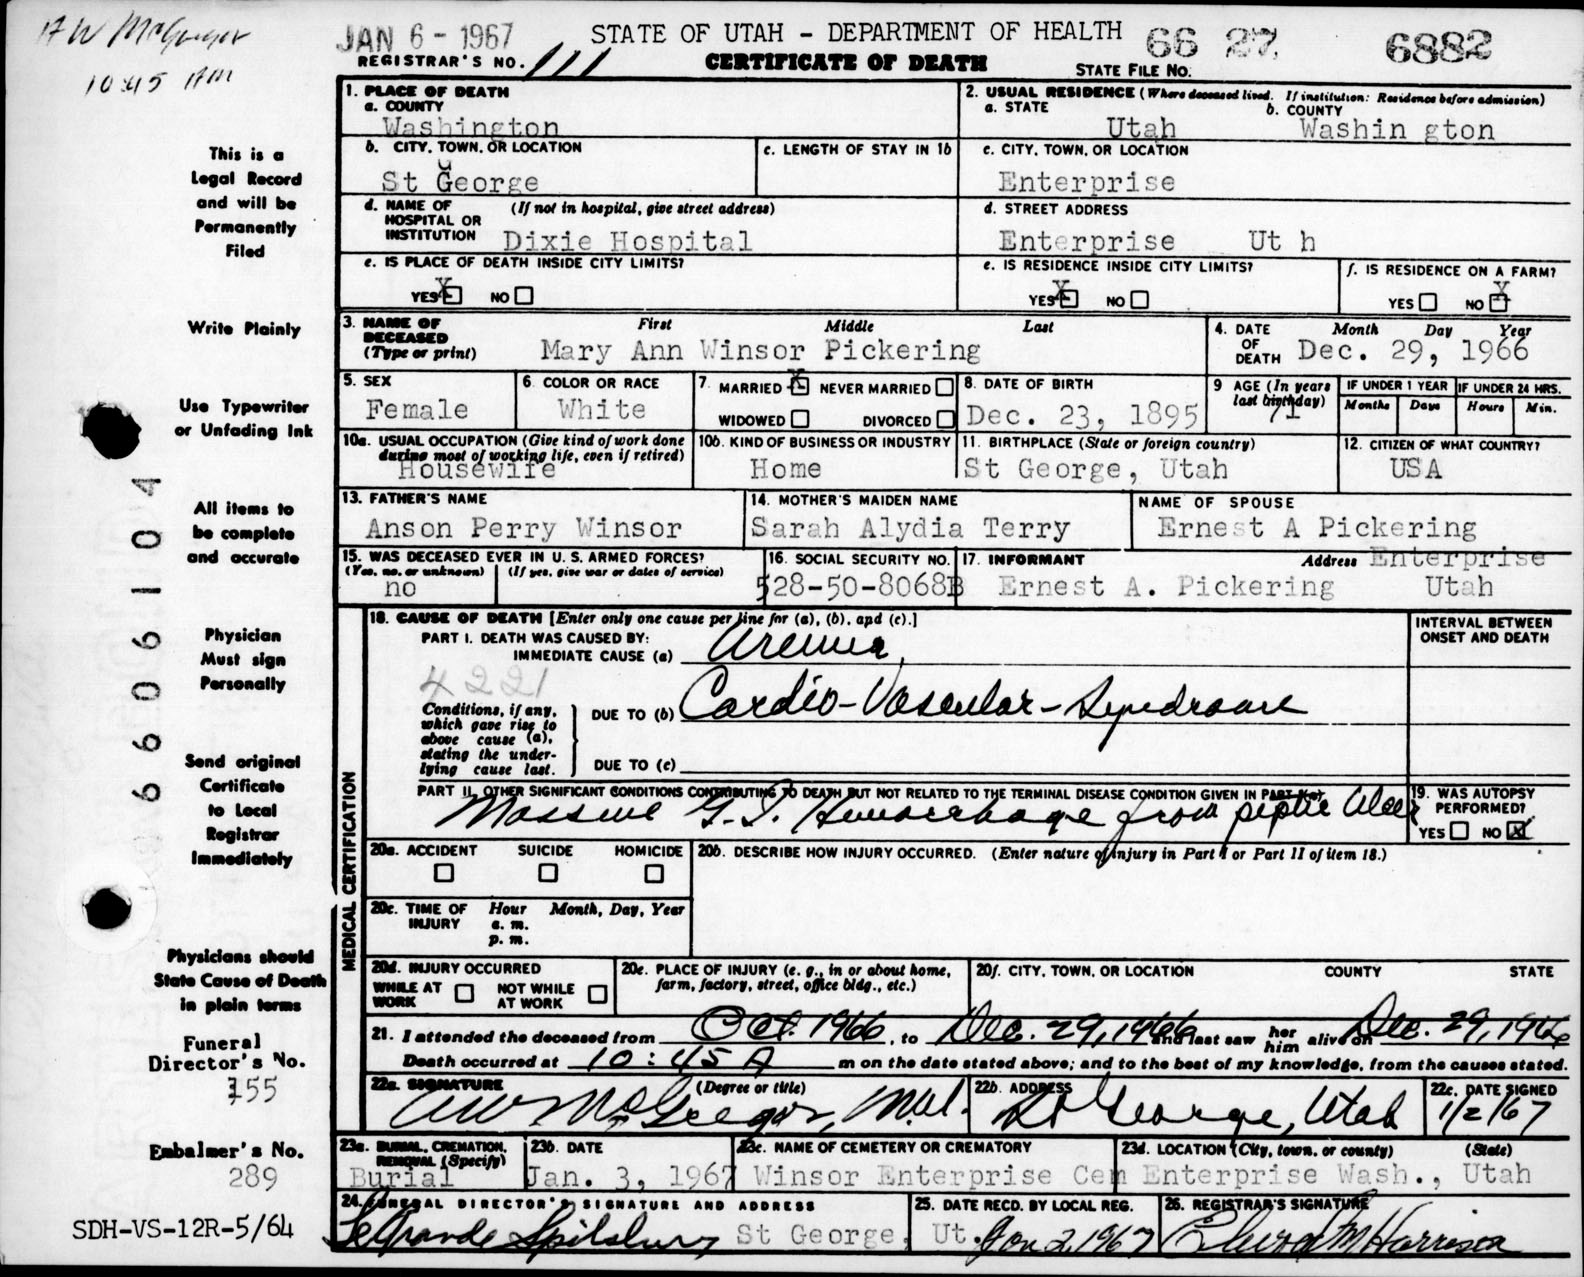 AW McGregor
10:45 AM
JAN 6 - 1967
STATE OF UTAH - DEPARTMENT OF HEALTH
66 27
6882
REGISTRAR'S NO. 111
CERTIFICATE OF DEATH
STATE FILE NO.
This is a
Legal Record
and will be
Permanently
Filed
Write Plainly
Use Typewriter
or Unfading Ink
All items to
be complete
and accurate
Physician
Must sign
Personally
Send original
Certificate
to Local
Registrar
Immediately
Physicians should
State Cause of Death
in plain terms
Funeral
Director's No.
155
Embalmer's No.
289
SDH-VS-12R-5/64
660906104
1. PLACE OF DEATH
a. COUNTY
Washington
2. USUAL RESIDENCE (Where deceased lived. If institution: Residence before admission)
a. STATE
Utah
b. COUNTY
Washin gton
b. CITY, TOWN, OR LOCATION
St George
c. LENGTH OF STAY IN 1b
c. CITY, TOWN, OR LOCATION
Enterprise
d. NAME OF HOSPITAL OR INSTITUTION
(If not in hospital, give street address)
Dixie Hospital
d. STREET ADDRESS
Enterprise Ut h
e. IS PLACE OF DEATH INSIDE CITY LIMITS?
YES X NO
e. IS RESIDENCE INSIDE CITY LIMITS?
YES X NO
f. IS RESIDENCE ON A FARM?
YES NO X
3. NAME OF DECEASED (Type or print)
First Middle Last
Mary Ann Winsor Pickering
4. DATE OF DEATH
Month Day Year
Dec. 29, 1966
5. SEX
Female
6. COLOR OR RACE
White
7. MARRIED X NEVER MARRIED
WIDOWED DIVORCED
8. DATE OF BIRTH
Dec. 23, 1895
9 AGE (In years last birthday)
71
IF UNDER 1 YEAR
Months Days
IF UNDER 24 HRS.
Hours Min.
10a. USUAL OCCUPATION (Give kind of work done during most of working life, even if retired)
Housewife
10b. KIND OF BUSINESS OR INDUSTRY
Home
11. BIRTHPLACE (State or foreign country)
St George, Utah
12. CITIZEN OF WHAT COUNTRY?
USA
13. FATHER'S NAME
Anson Perry Winsor
14. MOTHER'S MAIDEN NAME
Sarah Alydia Terry
NAME OF SPOUSE
Ernest A Pickering
15. WAS DECEASED EVER IN U. S. ARMED FORCES?
(Yes, no, or unknown) (If yes, give war or dates of service)
no
16. SOCIAL SECURITY NO.
528-50-8068B
17. INFORMANT
Ernest A. Pickering
Address Enterprise
Utah
MEDICAL CERTIFICATION
18. CAUSE OF DEATH [Enter only one cause per line for (a), (b), and (c).]
PART I. DEATH WAS CAUSED BY:
IMMEDIATE CAUSE (a) Uremia
4221
INTERVAL BETWEEN ONSET AND DEATH
Conditions, if any, which gave rise to above cause (a), stating the underlying cause last.
DUE TO (b) Cardio-Vascular-Syndrome
DUE TO (c)
PART II. OTHER SIGNIFICANT CONDITIONS CONTRIBUTING TO DEATH BUT NOT RELATED TO THE TERMINAL DISEASE CONDITION GIVEN IN PART I(a)
Massive G.I. Hemorrhage from peptic Ulcer
19. WAS AUTOPSY PERFORMED?
YES NO X
20a. ACCIDENT SUICIDE HOMICIDE
20b. DESCRIBE HOW INJURY OCCURRED. (Enter nature of injury in Part I or Part II of item 18.)
20c. TIME OF INJURY
Hour Month, Day, Year
a. m.
p. m.
20d. INJURY OCCURRED
WHILE AT WORK NOT WHILE AT WORK
20e. PLACE OF INJURY (e. g., in or about home, farm, factory, street, office bldg., etc.)
20f. CITY, TOWN, OR LOCATION COUNTY STATE
21. I attended the deceased from Oct. 1966, to Dec. 29, 1966 and last saw her him alive on Dec. 29, 1966
Death occurred at 10:45 A m on the date stated above; and to the best of my knowledge, from the causes stated.
22a. SIGNATURE (Degree or title)
AW McGregor, M.D.
22b. ADDRESS
St George, Utah
22c. DATE SIGNED
1/2/67
23a. BURIAL, CREMATION, REMOVAL (Specify)
Burial
23b. DATE
Jan. 3, 1967
23c. NAME OF CEMETERY OR CREMATORY
Winsor Enterprise Cem
23d. LOCATION (City, town, or county) (State)
Enterprise Wash., Utah
24. FUNERAL DIRECTOR'S SIGNATURE AND ADDRESS
LeGrande Spilsbury St George, Ut.
25. DATE RECD. BY LOCAL REG.
Jan 2, 1967
26. REGISTRAR'S SIGNATURE
M Harrison